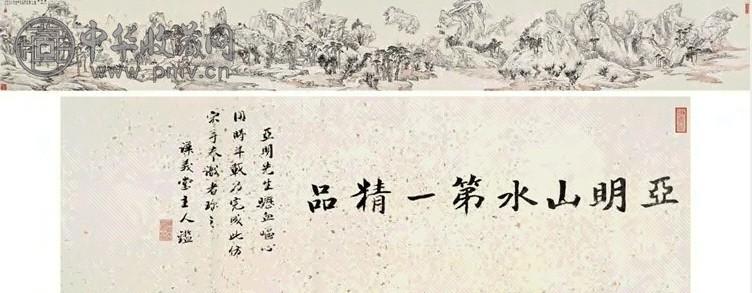 中华收藏网
www.pmlv.cn
亞明山水第一精品
亞明先生瀝血嘔心
用時半載乃完成此仿
宋手卷識者珍之
義堂主人鑑